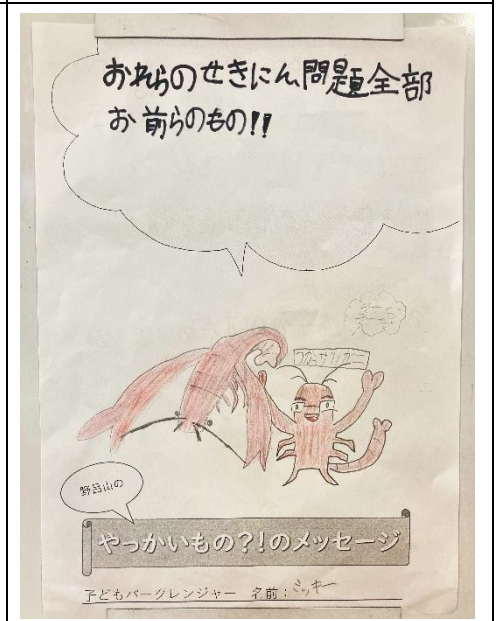 おれらのせきにん、問題全部
お前らのもの!!
野呂山の
やっかいもの?!のメッセージ
子どもパークレンジャー 名前:ミッキー